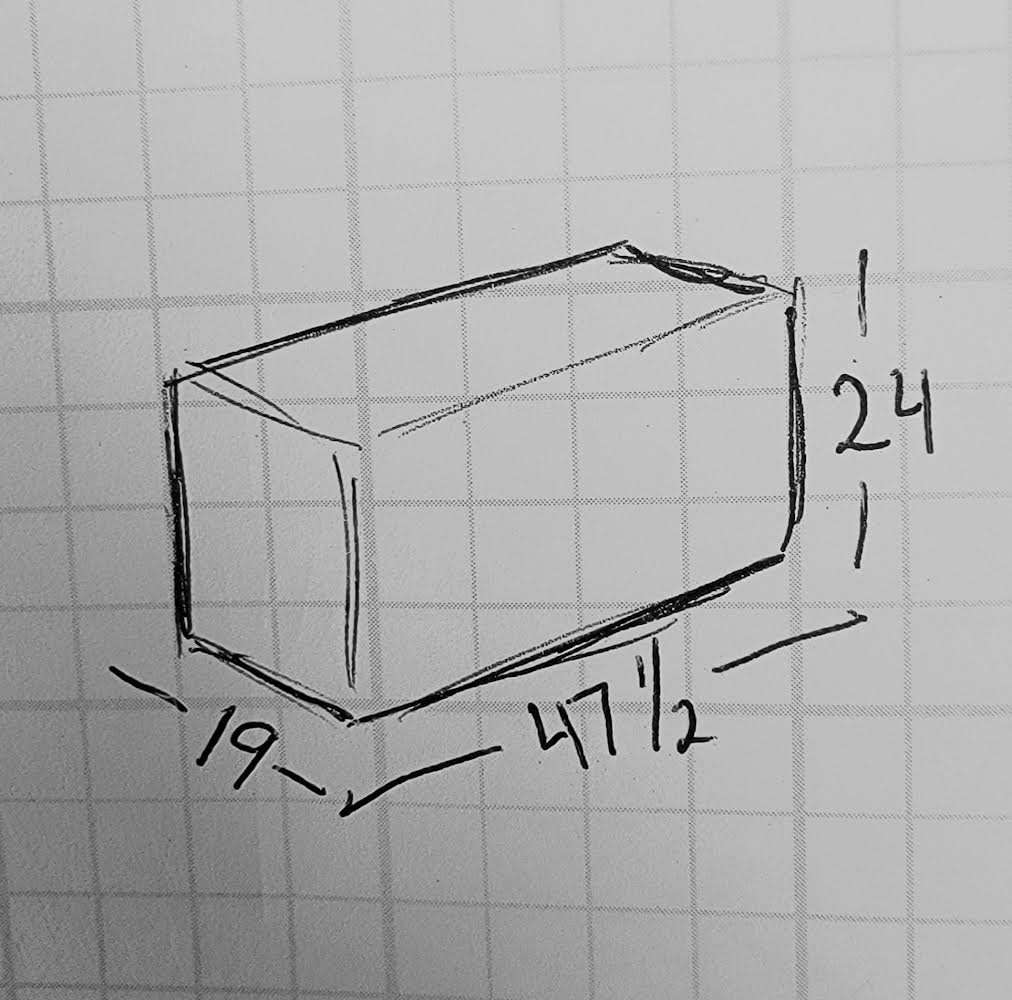 24
19
47 1/2